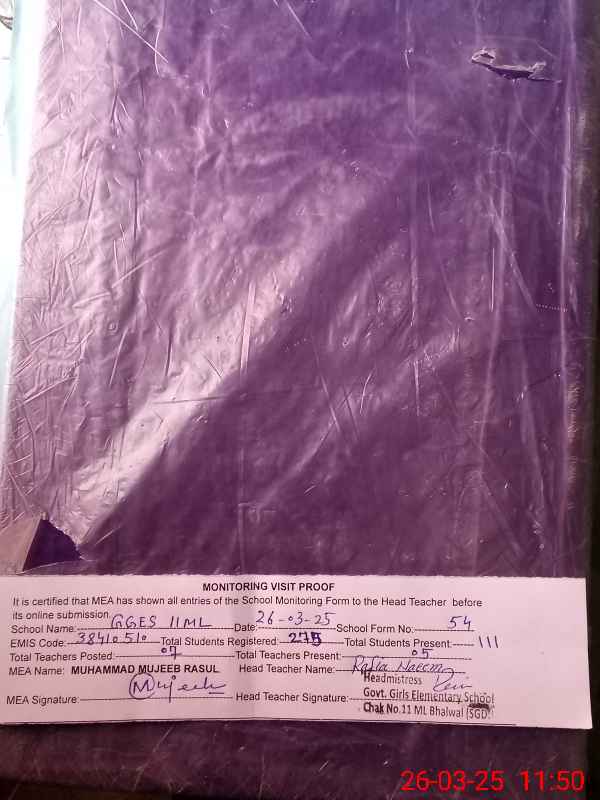 MONITORING VISIT PROOF
It is certified that MEA has shown all entries of the School Monitoring Form to the Head Teacher before
its online submission.
School Name: GGES 11ML Date: 26-03-25 School Form No: 54
EMIS Code: 38410510 Total Students Registered: 275 Total Students Present: 111
Total Teachers Posted: 07 Total Teachers Present: 05
MEA Name: MUHAMMAD MUJEEB RASUL Head Teacher Name: Rafia Naeem
MEA Signature: Mujeeb Head Teacher Signature:
Headmistress
Govt. Girls Elementary School
Chak No.11 ML Bhalwal (SGD.
26-03-25 11:50